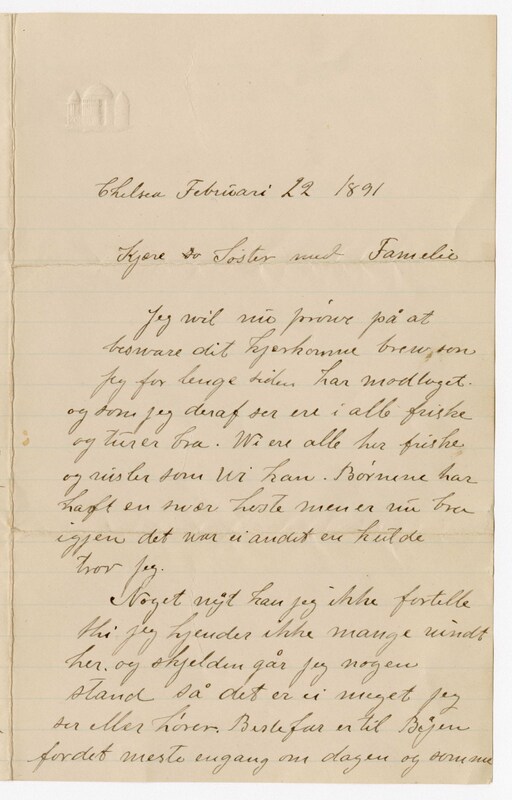 Chelsea Februari 22 1891
Kjære Do Søster med Famelie
Jeg wil nu prøwe på at
besware dit kjærkomne brew, som
jeg for lenge siden har modtaget.
og som jeg deraf ser ere i alle friske
og turer bra. Wi ere alle her friske
og rusler som wi kan. Børnene har
haft en swær hoste men er nu bra
igjen det war ei andet en kulde
trov jeg.
Noget nyt kan jeg ikke fortelle
thi jeg kjender ikke mange rundt
her. og skjelden går jeg nogen
stand så det er ei meget jeg
ser eller hører. Bestefar er til Byen
fordet meste engang om dagen og somme